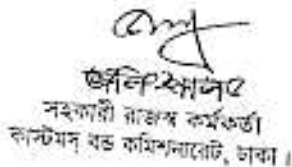 সহকারী রাজস্ব কর্মকর্তা
কাস্টমস্ বন্ড কমিশনারেট, ঢাকা।